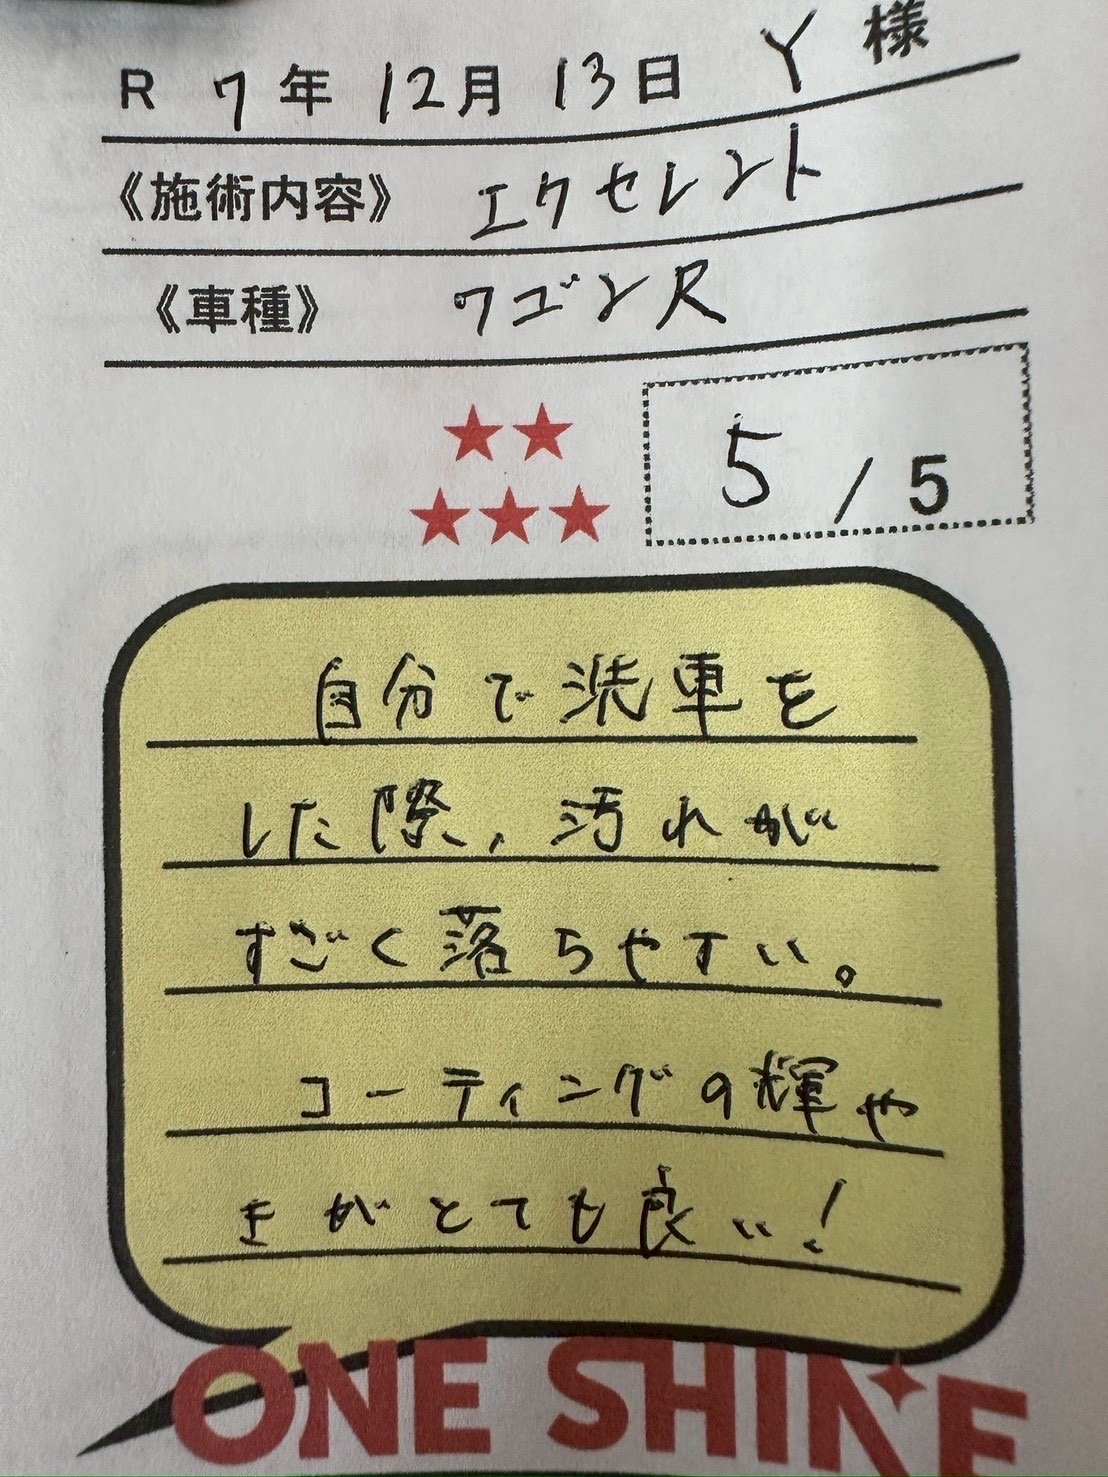 R 7年 12月 13日 Y 様
《施術内容》 エクセレント
《車種》 ワゴンR
5 / 5
自分で洗車を
した際、汚れが
すごく落ちやすい。
コーティングの輝や
きがとても良い!
ONE SHINE